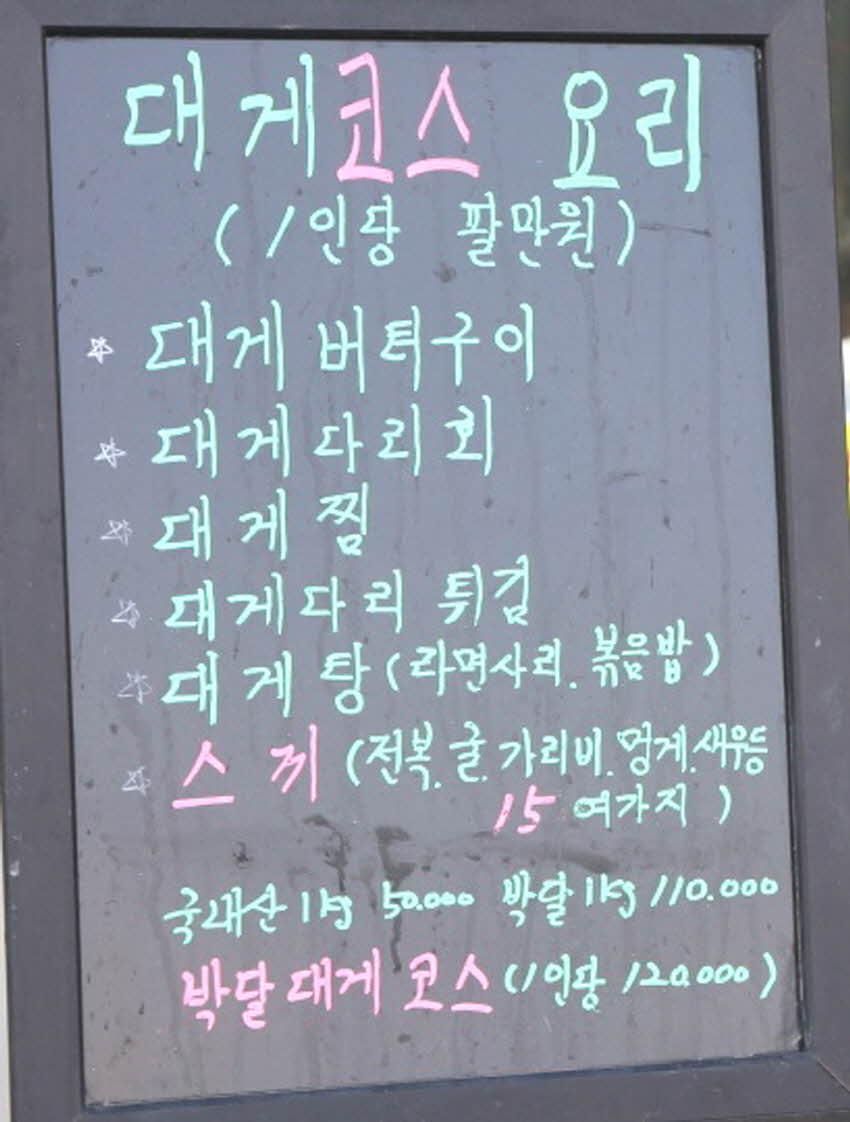 대게코스 요리
(1인당 팔만원)
☆ 대게 버터구이
☆ 대게다리회
☆ 대게찜
☆ 대게다리 튀김
☆ 대게탕 (라면사리. 볶음밥)
☆ 스끼 (전복. 굴. 가리비. 멍게. 새우등
15 여가지)
국내산 1kg 50.000 박달 1kg 110.000
박달대게 코스 (1인당 120.000)